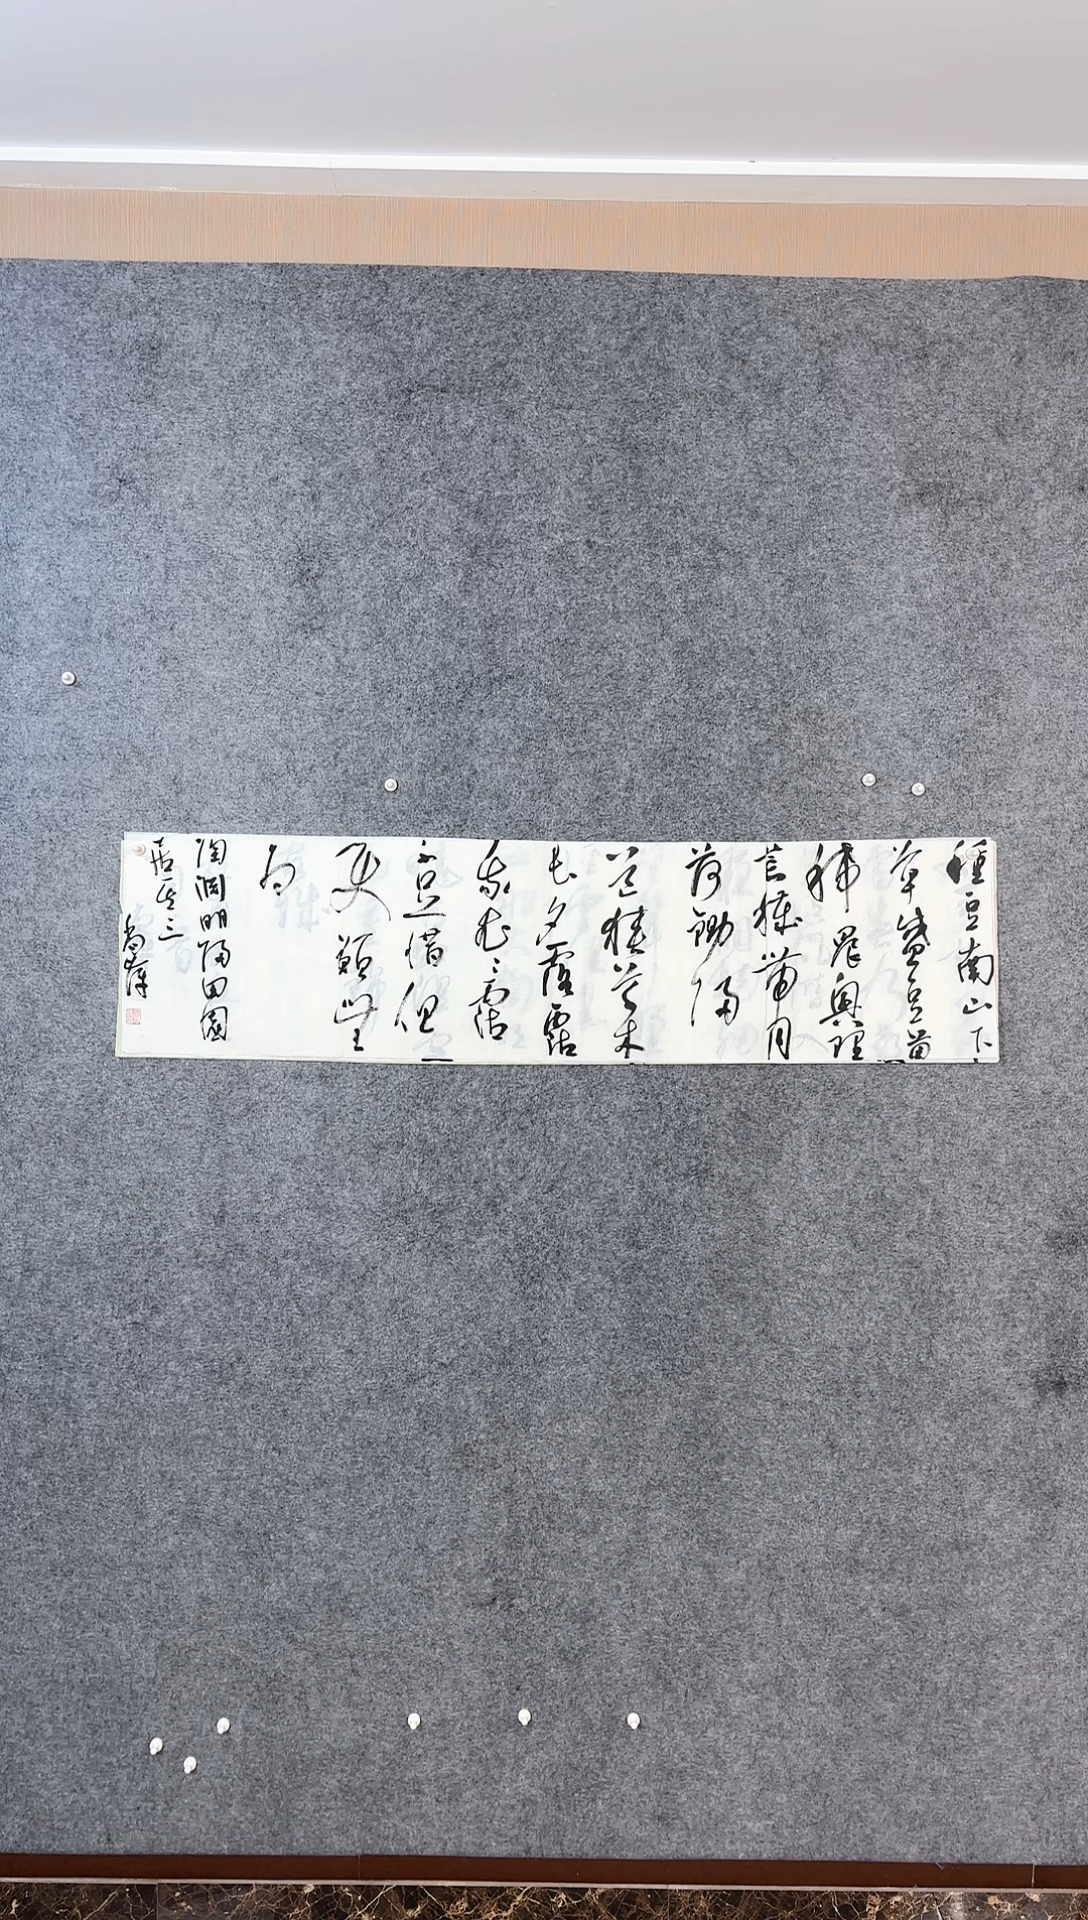 種豆南山下
草盛豆苗
稀晨興理
荒穢帶月
荷鋤歸
道狹草木
長夕露霑
我衣〻霑
不足惜但
使願無
違
陶淵明歸田園
居其三